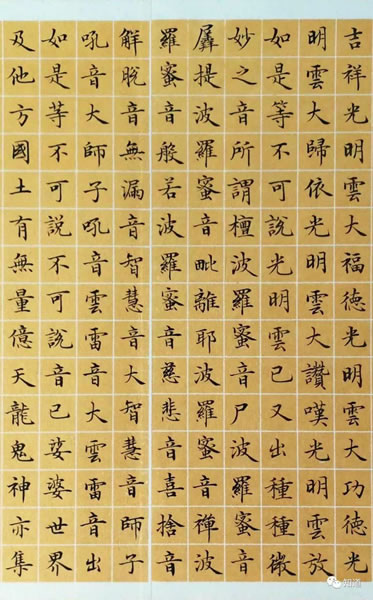 吉祥光明雲大福德光明雲大功德光
明雲大歸依光明雲大讚嘆光明雲放
如是等不可說光明雲已又出種種微
妙之音所謂檀波羅蜜音尸波羅蜜音
羼提波羅蜜音毗離耶波羅蜜音禪波
羅蜜音般若波羅蜜音慈悲音喜捨音
解脫音無漏音智慧音大智慧音師子
吼音大師子吼音雲雷音大雲雷音出
如是等不可説不可説音已娑婆世界
及他方國土有無量億天龍鬼神亦集